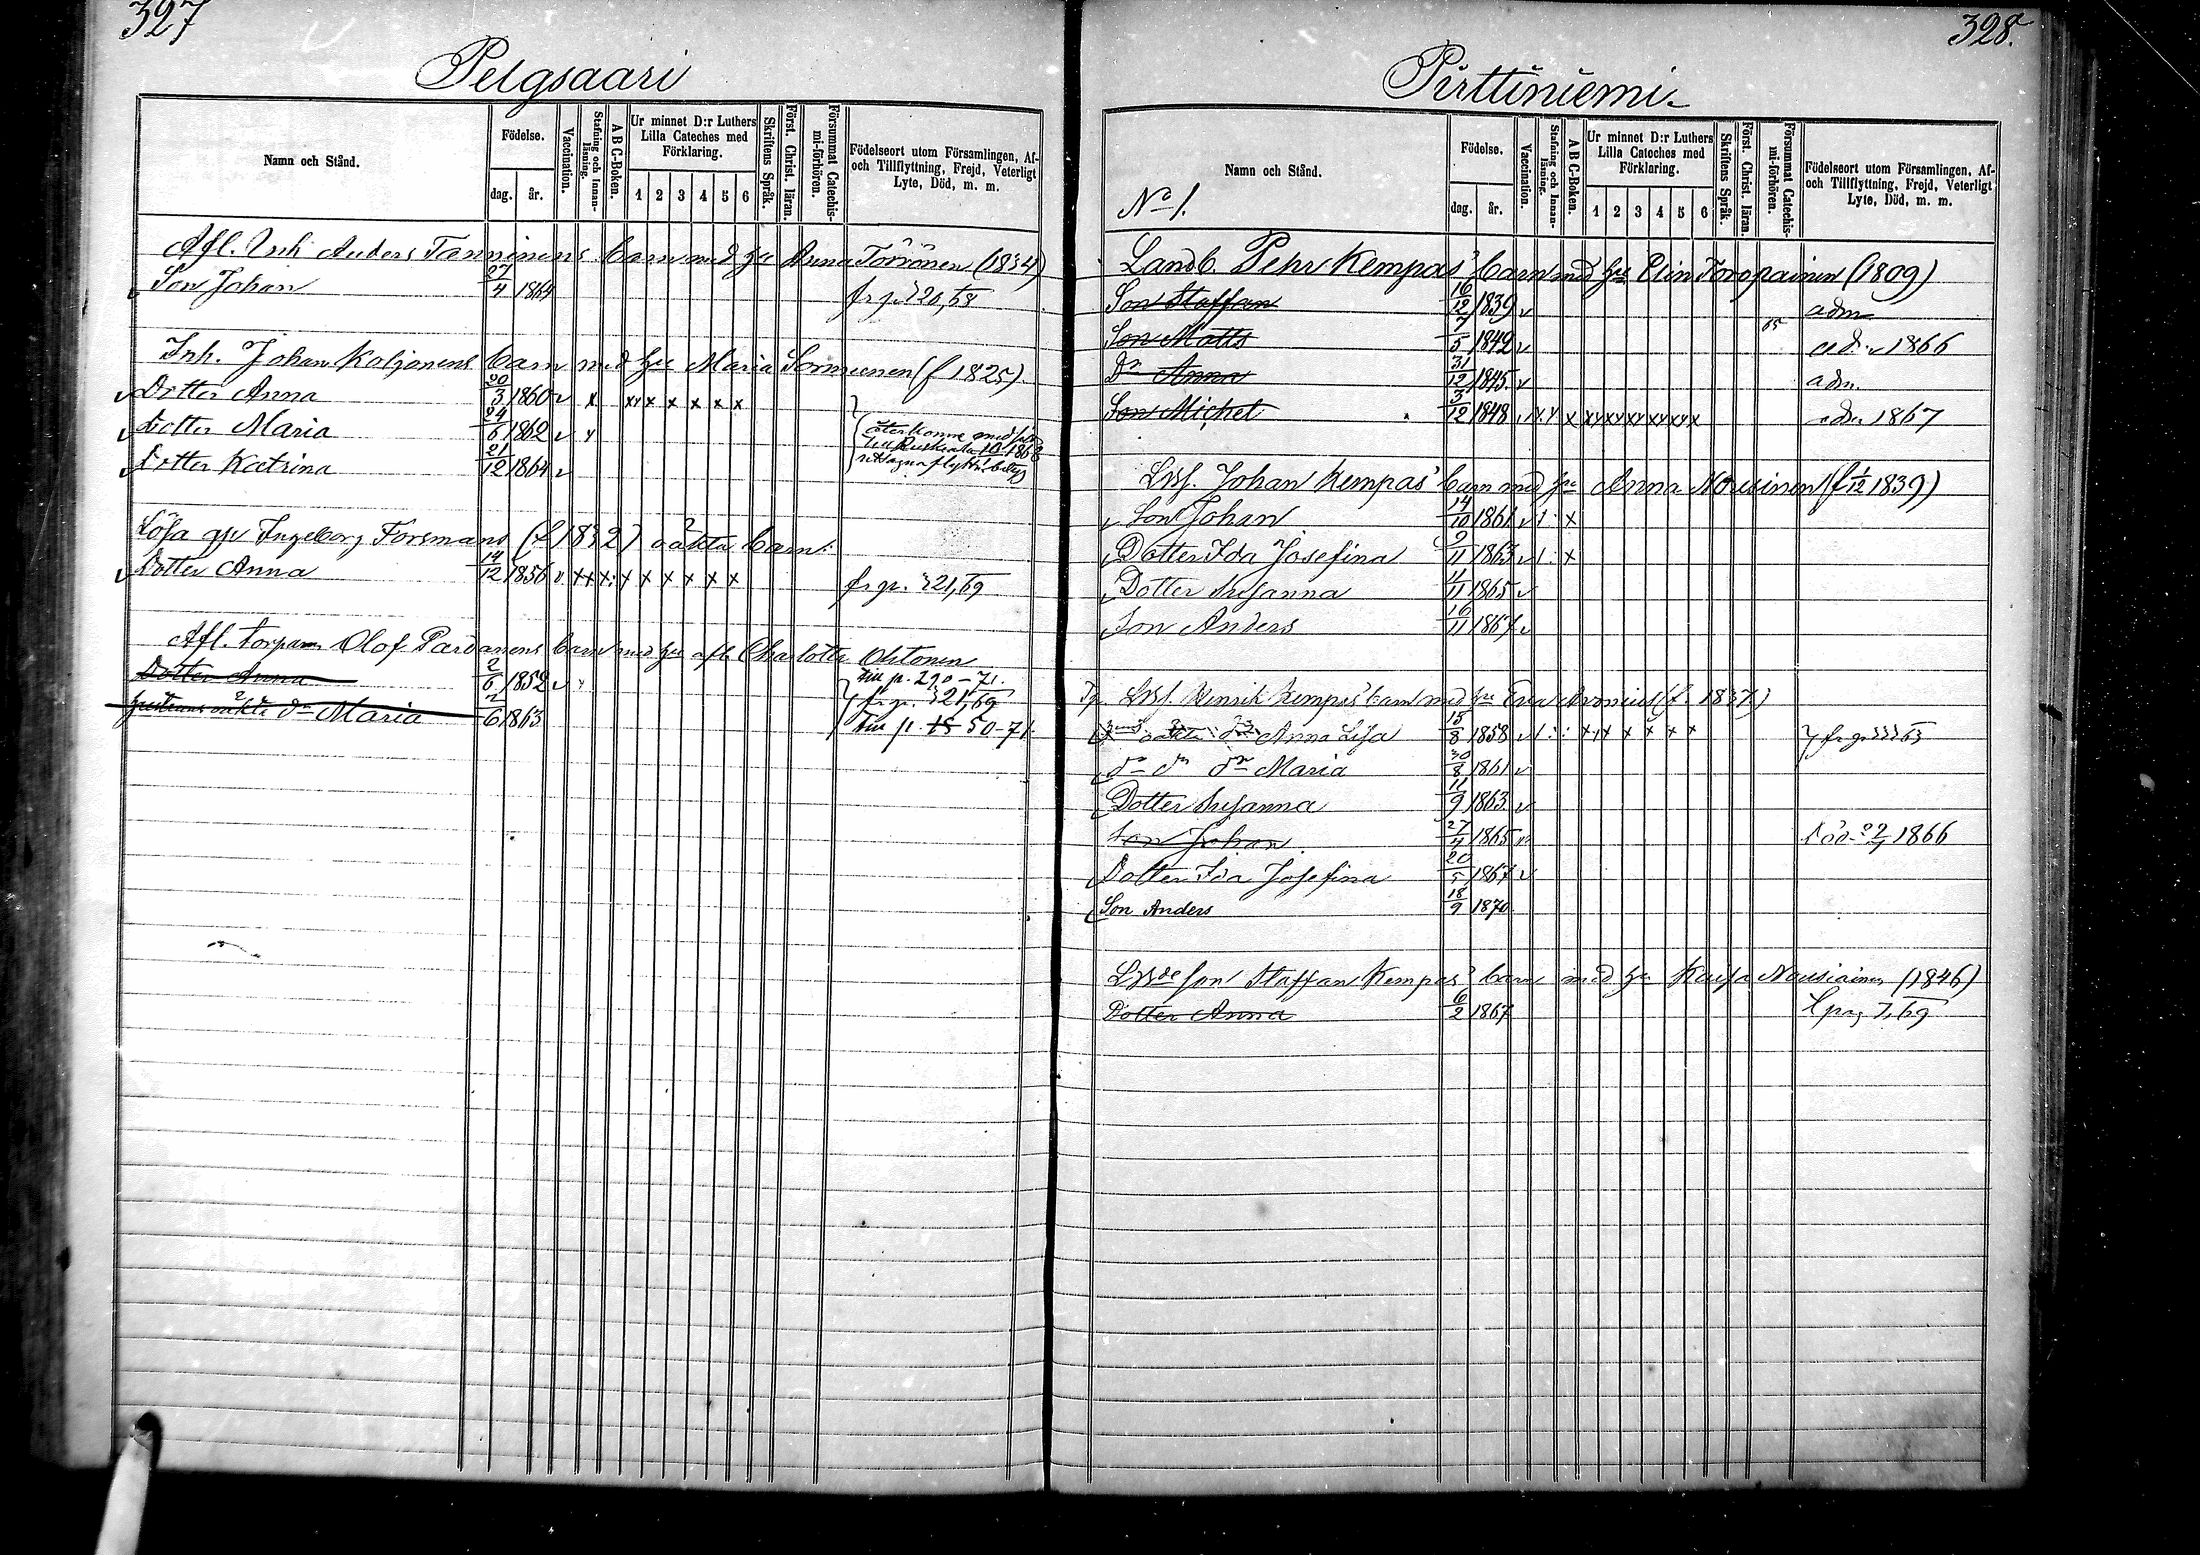 327
Pelgsaari
Namn och Stånd.
Födelse.
dag. år.
Vaccination.
Stafning och Innanläsning.
A B C-Boken.
Ur minnet D:r Luthers Lilla Cateches med Förklaring.
1 2 3 4 5 6
Skriftens Språk.
Först. Christ. läran.
Försummat Catechismi-förhören.
Födelseort utom Församlingen, Af- och Tillflyttning, Frejd, Veterligt Lyte, Död, m. m.
Afl. Inh Anders Tanninens barn med hu Anna Törrönen (1834)
Son Johan 27/4 1864 fr p. 320,68
Inh. Johan Koljonens barn med hu Maria Sormunen (f 1825)
Dotter Anna 20/3 1860 v x xx x x x x x
Dotter Maria 24/6 1862 v
Dotter Katrina 21/12 1864 v
Lösa qv Ingeborg Forsmans (f 1832) oäkta barn:
Dotter Anna 14/12 1856 v. x x x: x x x x x x fr p. 321,69
Afl. torparn Olof Pardanens barn med hu afl. Charlotta Oktonen
Dotter Anna 2/6 1852 v till p. 290-71.
fr p. 321,69
hustruns oäkta dr Maria 7/6 1863 till p. 15 50-71.
328.
Pirttiniemi
Namn och Stånd.
No 1.
Födelse.
dag. år.
Vaccination.
Stafning och Innanläsning.
A B C-Boken.
Ur minnet D:r Luthers Lilla Cateches med Förklaring.
1 2 3 4 5 6
Skriftens Språk.
Först. Christ. läran.
Försummat Catechismi-förhören.
Födelseort utom Församlingen, Af- och Tillflyttning, Frejd, Veterligt Lyte, Död, m. m.
Landb. Pehr Kempas' barn med hu Elin Toropainen (1809)
Son Staffan 16/12 1839 v adm
Son Matts 7/5 1842 v 65 adm 1866
Dr Anna 31/12 1845 v adm.
Son Michel 3/12 1848 v x x x xx xx xx xx xx x adm 1867
Lbf. Johan Kempas' barn med hu Anna Nousinen (f 1/12 1839)
Son Johan 14/10 1861 v 1: x
Dotter Ida Josefina 9/11 1863 v 1: x
Dotter Susanna 4/11 1865 v
Son Anders 16/11 1867 v
Lbf. Henrik Kempas' barn med hu Eva Aronius (f. 1837)
oäkta dr Anna Lisa 15/8 1858 v 1: : x x x x x x fr p 333 63
do do dr Maria 30/8 1861 v
Dotter Susanna 11/9 1863 v
Son Johan 27/4 1865 v Död 1866
Dotter Ida Josefina 20/5 1867 v
Son Anders 18/9 1870
Lbde son Staffan Kempas' barn med hu Kaisa Nousiainen (1846)
Dotter Anna 6/2 1867 t pag 7,69